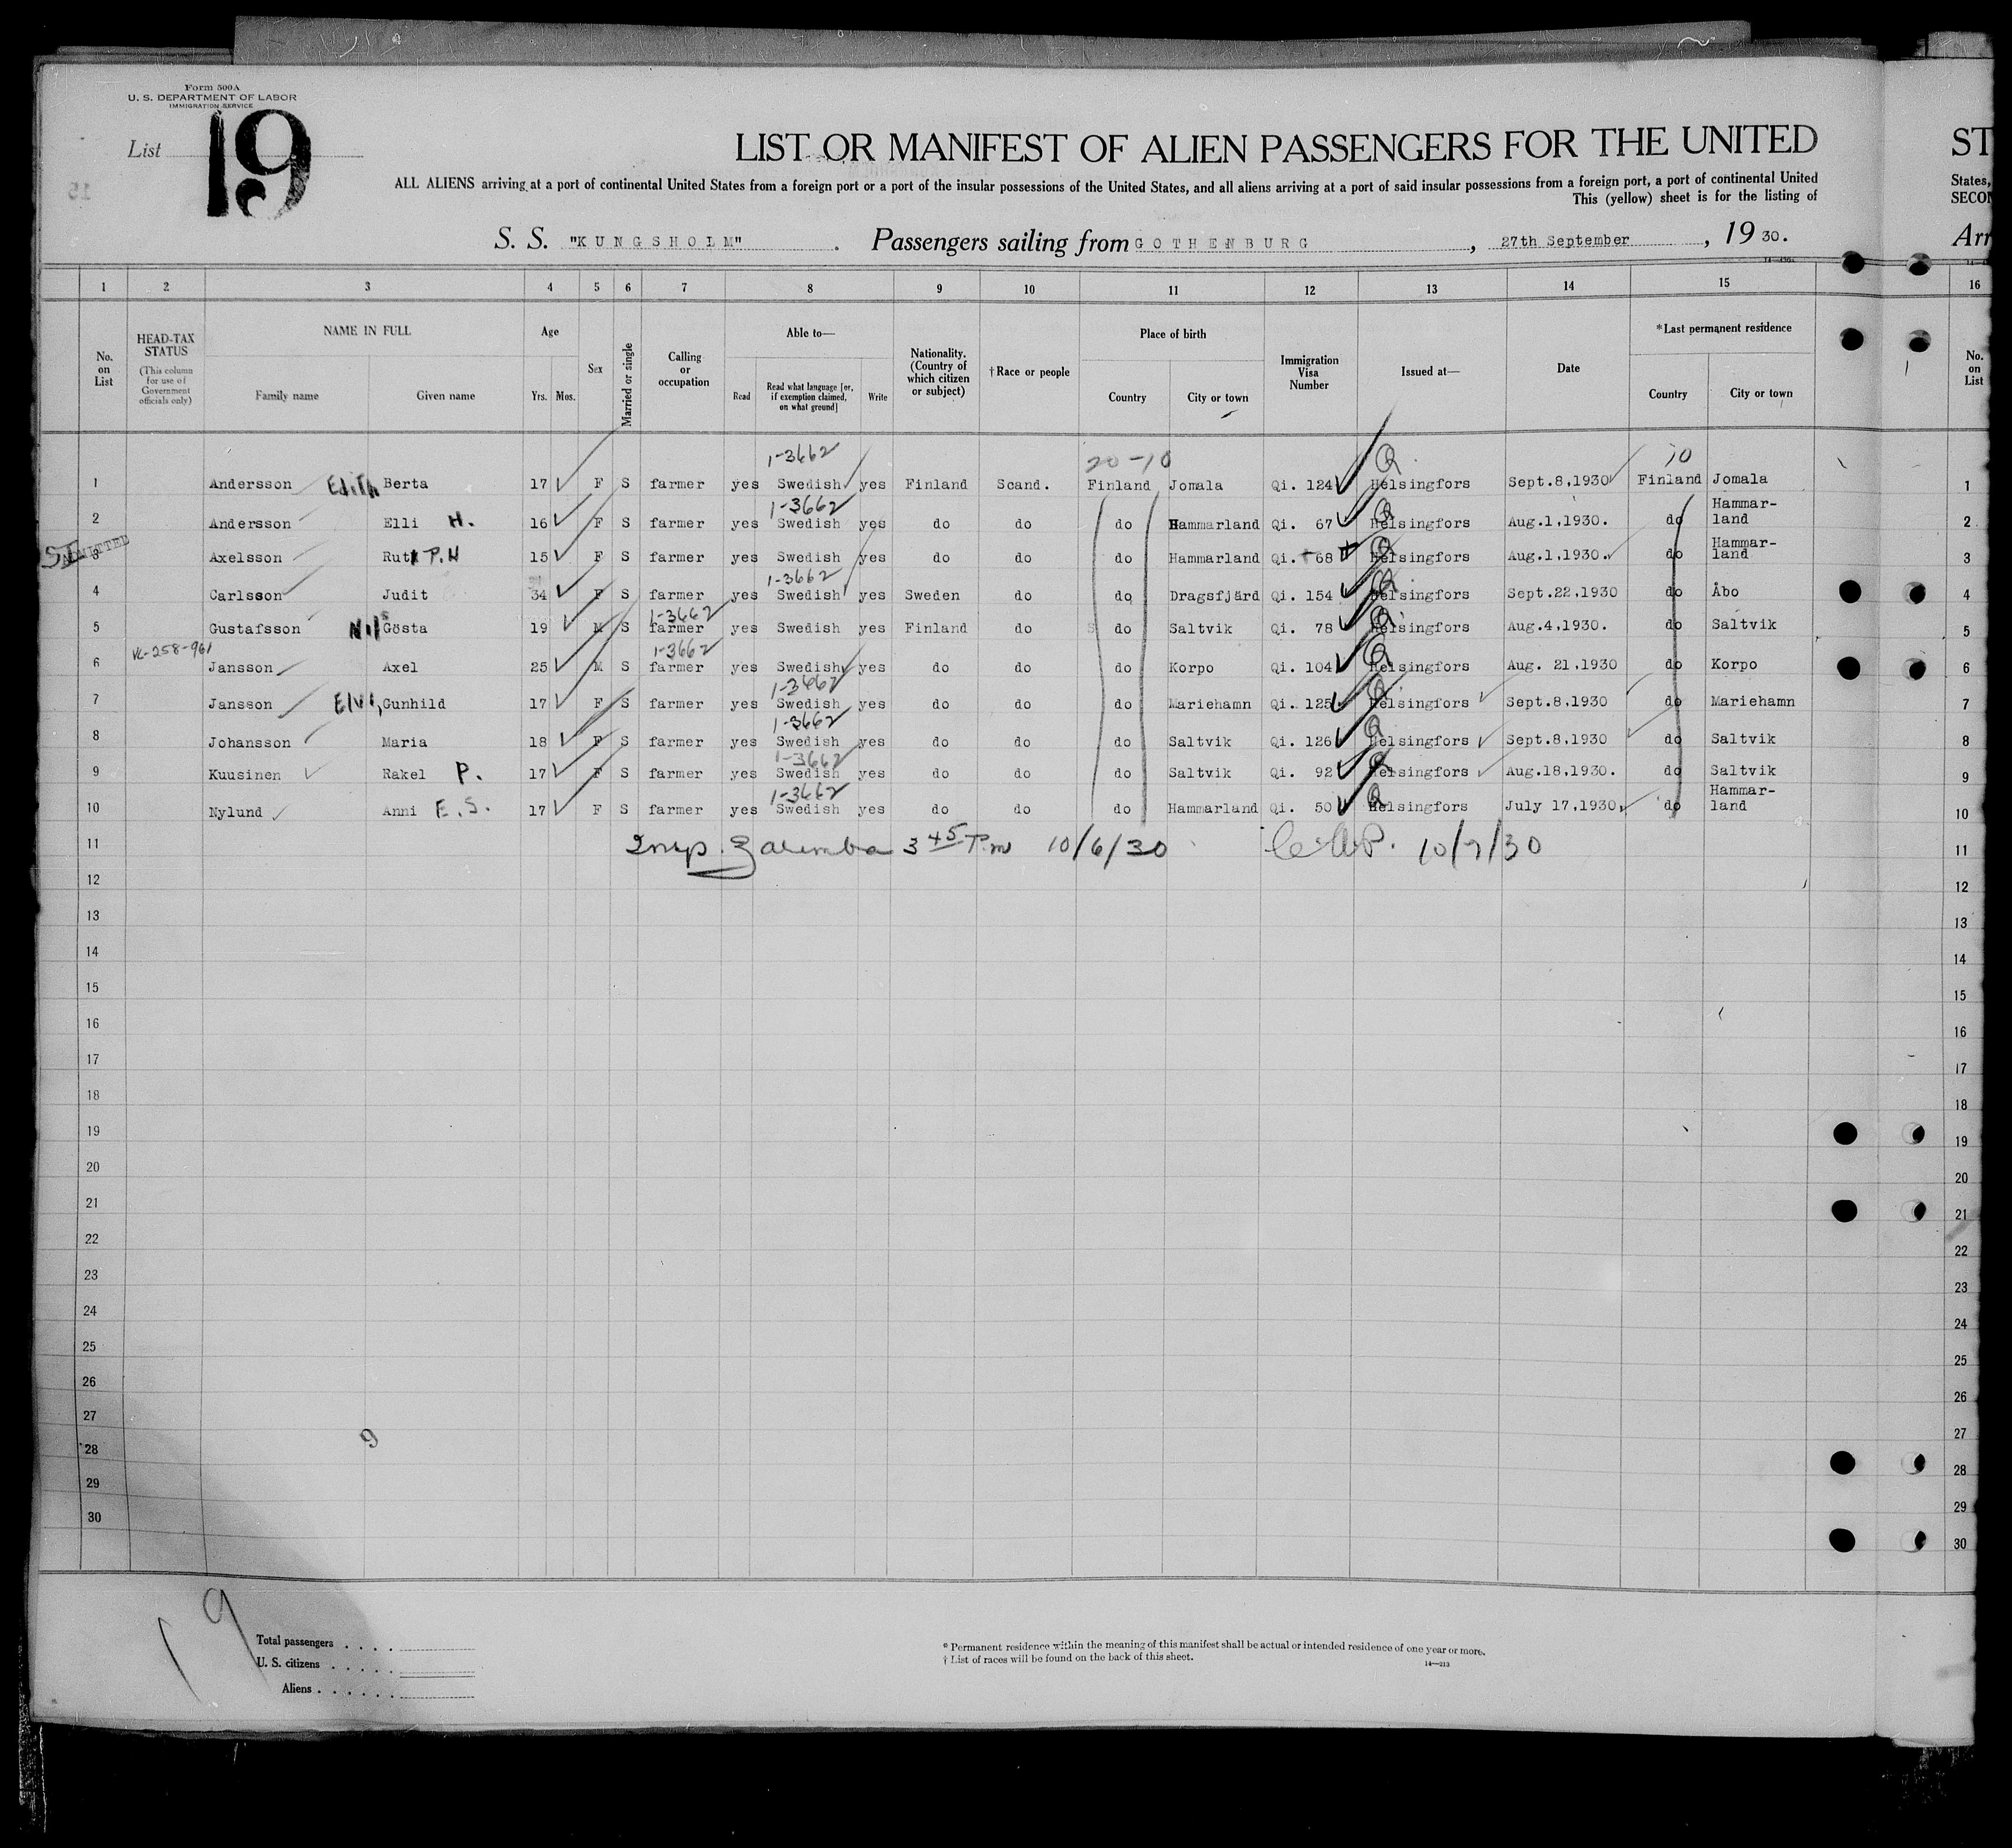 Form 500A
U. S. DEPARTMENT OF LABOR
IMMIGRATION SERVICE
List 19
LIST OR MANIFEST OF ALIEN PASSENGERS FOR THE UNITED
ST
ALL ALIENS arriving at a port of continental United States from a foreign port or a port of the insular possessions of the United States, and all aliens arriving at a port of said insular possessions from a foreign port, a port of continental United
States,
This (yellow) sheet is for the listing of
SECON
S. S. "KUNGSHOLM" . Passengers sailing from GOTHENBURG , 27th September , 19 30.
Arr
1 2 3 4 5 6 7 8 9 10 11 12 13 14 15 16
No. on List
HEAD-TAX STATUS
(This column for use of Government officials only)
NAME IN FULL
Family name Given name
Age
Yrs. Mos.
Sex
Married or single
Calling or occupation
Able to—
Read
Read what language [or, if exemption claimed, on what ground]
Write
Nationality. (Country of which citizen or subject)
†Race or people
Place of birth
Country City or town
Immigration Visa Number
Issued at—
Date
*Last permanent residence
Country City or town
No. on List
1-3662 20-10 Q 10
1 Andersson Edith Berta 17 F S farmer yes Swedish yes Finland Scand. Finland Jomala Qi. 124 Helsingfors Sept.8,1930 Finland Jomala 1
1-3662 Q
2 Andersson Elli H. 16 F S farmer yes Swedish yes do do do Hammarland Qi. 67 Helsingfors Aug.1,1930. do Hammar-land 2
ADMITTED
3 Axelsson Rut P.H 15 F S farmer yes Swedish yes do do do Hammarland Qi. 68 Helsingfors Aug.1,1930. do Hammar-land 3
1-3662 Q
4 Carlsson Judit 34 F S farmer yes Swedish yes Sweden do do Dragsfjärd Qi. 154 Helsingfors Sept.22,1930 do Åbo 4
1-3662 Q
5 Gustafsson Nils Gösta 19 M S farmer yes Swedish yes Finland do do Saltvik Qi. 78 Helsingfors Aug.4,1930. do Saltvik 5
1-3662 Q
6 Jansson Axel 25 M S farmer yes Swedish yes do do do Korpo Qi. 104 Helsingfors Aug. 21,1930 do Korpo 6
1-3662 Q
7 Jansson Gunhild 17 F S farmer yes Swedish yes do do do Mariehamn Qi. 125 Helsingfors Sept.8,1930 do Mariehamn 7
1-3662 Q
8 Johansson Maria 18 F S farmer yes Swedish yes do do do Saltvik Qi. 126 Helsingfors Sept.8,1930 do Saltvik 8
1-3662 Q
9 Kuusinen Rakel P. 17 F S farmer yes Swedish yes do do do Saltvik Qi. 92 Helsingfors Aug.18,1930. do Saltvik 9
1-3662 Q
10 Nylund Anni E.S. 17 F S farmer yes Swedish yes do do do Hammarland Qi. 50 Helsingfors July 17,1930, do Hammar-land 10
11 Insp. 3 45 P.m 10/6/30 10/7/30 11
12 12
13 13
14 14
15 15
16 16
17 17
18 18
19 19
20 20
21 21
22 22
23 23
24 24
25 25
26 26
27 27
28 28
29 29
30 30
9
19
Total passengers
U. S. citizens
Aliens
* Permanent residence within the meaning of this manifest shall be actual or intended residence of one year or more.
† List of races will be found on the back of this sheet.
14—213